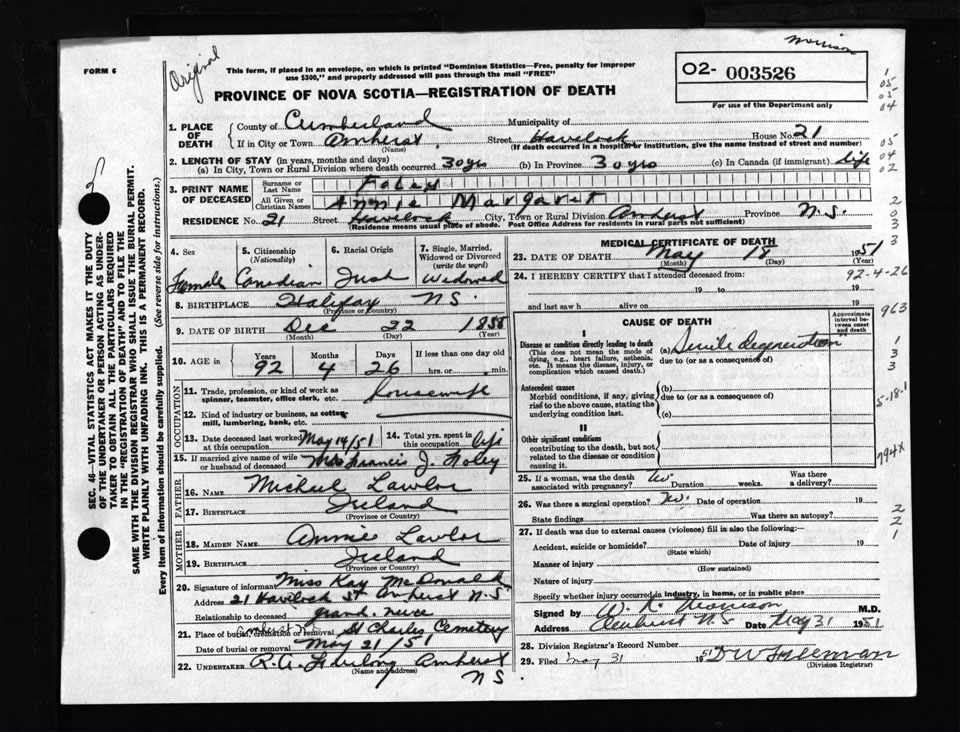 Morrison
FORM 6
Original
This form, if placed in an envelope, on which is printed "Dominion Statistics—Free, penalty for improper
use $300," and properly addressed will pass through the mail "FREE"
O2- 003526
For use of the Department only
PROVINCE OF NOVA SCOTIA—REGISTRATION OF DEATH
1. PLACE OF DEATH
County of Cumberland Municipality of
If in City or Town Amherst Street Havelock House No. 21
(Name) (If death occurred in a hospital or institution, give its name instead of street and number)
2. LENGTH OF STAY (in years, months and days)
(a) In City, Town or Rural Division where death occurred 30 yrs (b) In Province 30 yrs (c) In Canada (if immigrant) life
3. PRINT NAME OF DECEASED
Surname or Last Name Foley
All Given or Christian Names Annie Margaret
RESIDENCE No. 21 Street Havelock City, Town or Rural Division Amherst Province N.S.
(Residence means usual place of abode. Post Office Address for residents in rural parts not sufficient)
4. Sex
Female
5. Citizenship (Nationality)
Canadian
6. Racial Origin
Irish
7. Single, Married, Widowed or Divorced (write the word)
Widowed
8. BIRTHPLACE Halifax N.S.
(Province or Country)
9. DATE OF BIRTH Dec 22 1858
(Month) (Day) (Year)
10. AGE in Years Months Days If less than one day old
92 4 26 hrs. or min.
OCCUPATION
11. Trade, profession, or kind of work as spinner, teamster, office clerk, etc. Housewife
12. Kind of industry or business, as cotton mill, lumbering, bank, etc.
13. Date deceased last worked at this occupation May 14/51
14. Total yrs. spent in this occupation life
15. If married give name of wife or husband of deceased Mr Francis J. Foley
FATHER
16. NAME Michael Lawlor
17. BIRTHPLACE Ireland
(Province or Country)
MOTHER
18. MAIDEN NAME Annie Lawlor
19. BIRTHPLACE Ireland
(Province or Country)
20. Signature of informant Miss Kay McDonald
Address 21 Havelock St Amherst N.S.
Relationship to deceased grand niece
21. Place of burial, cremation or removal St Charles Cemetery
Date of burial or removal May 21/51
22. UNDERTAKER Amherst
(Name and address)
N.S.
MEDICAL CERTIFICATE OF DEATH
23. DATE OF DEATH May 18 1951
(Month) (Day) (Year)
24. I HEREBY CERTIFY that I attended deceased from:
19 to 19
and last saw h alive on 19
CAUSE OF DEATH
Approximate interval between onset and death
I
Disease or condition directly leading to death
(This does not mean the mode of dying, e.g., heart failure, asthenia, etc. It means the disease, injury, or complication which caused death.)
(a) Senile degeneration
due to (or as a consequence of)
Antecedent causes
Morbid conditions, if any, giving rise to the above cause, stating the underlying condition last.
(b)
due to (or as a consequence of)
(c)
II
Other significant conditions
contributing to the death, but not related to the disease or condition causing it.
25. If a woman, was the death associated with pregnancy? No. Duration weeks. Was there a delivery?
26. Was there a surgical operation? No. Date of operation 19
State findings Was there an autopsy?
27. If death was due to external causes (violence) fill in also the following:—
Accident, suicide or homicide? Date of injury 19
(State which)
Manner of injury
(How sustained)
Nature of injury
Specify whether injury occurred in industry, in home, or in public place
Signed by M.D.
Address Amherst N.S. Date May 31 1951
28. Division Registrar's Record Number
29. Filed May 31 1951
(Division Registrar)
SEC. 46—VITAL STATISTICS ACT MAKES IT THE DUTY
OF THE UNDERTAKER OR PERSON ACTING AS UNDERTAKER
TO OBTAIN ALL THE PARTICULARS REQUIRED
IN THE "REGISTRATION OF DEATH" AND TO FILE THE
SAME WITH THE DIVISION REGISTRAR WHO SHALL ISSUE THE BURIAL PERMIT.
WRITE PLAINLY WITH UNFADING INK. THIS IS A PERMANENT RECORD.
Every item of information should be carefully supplied. (See reverse side for instructions.)
1
05
05
04
05
04
02
2
0
3
3
92-4-26
963
1
3
3
5-18-1
794X
2
2
1